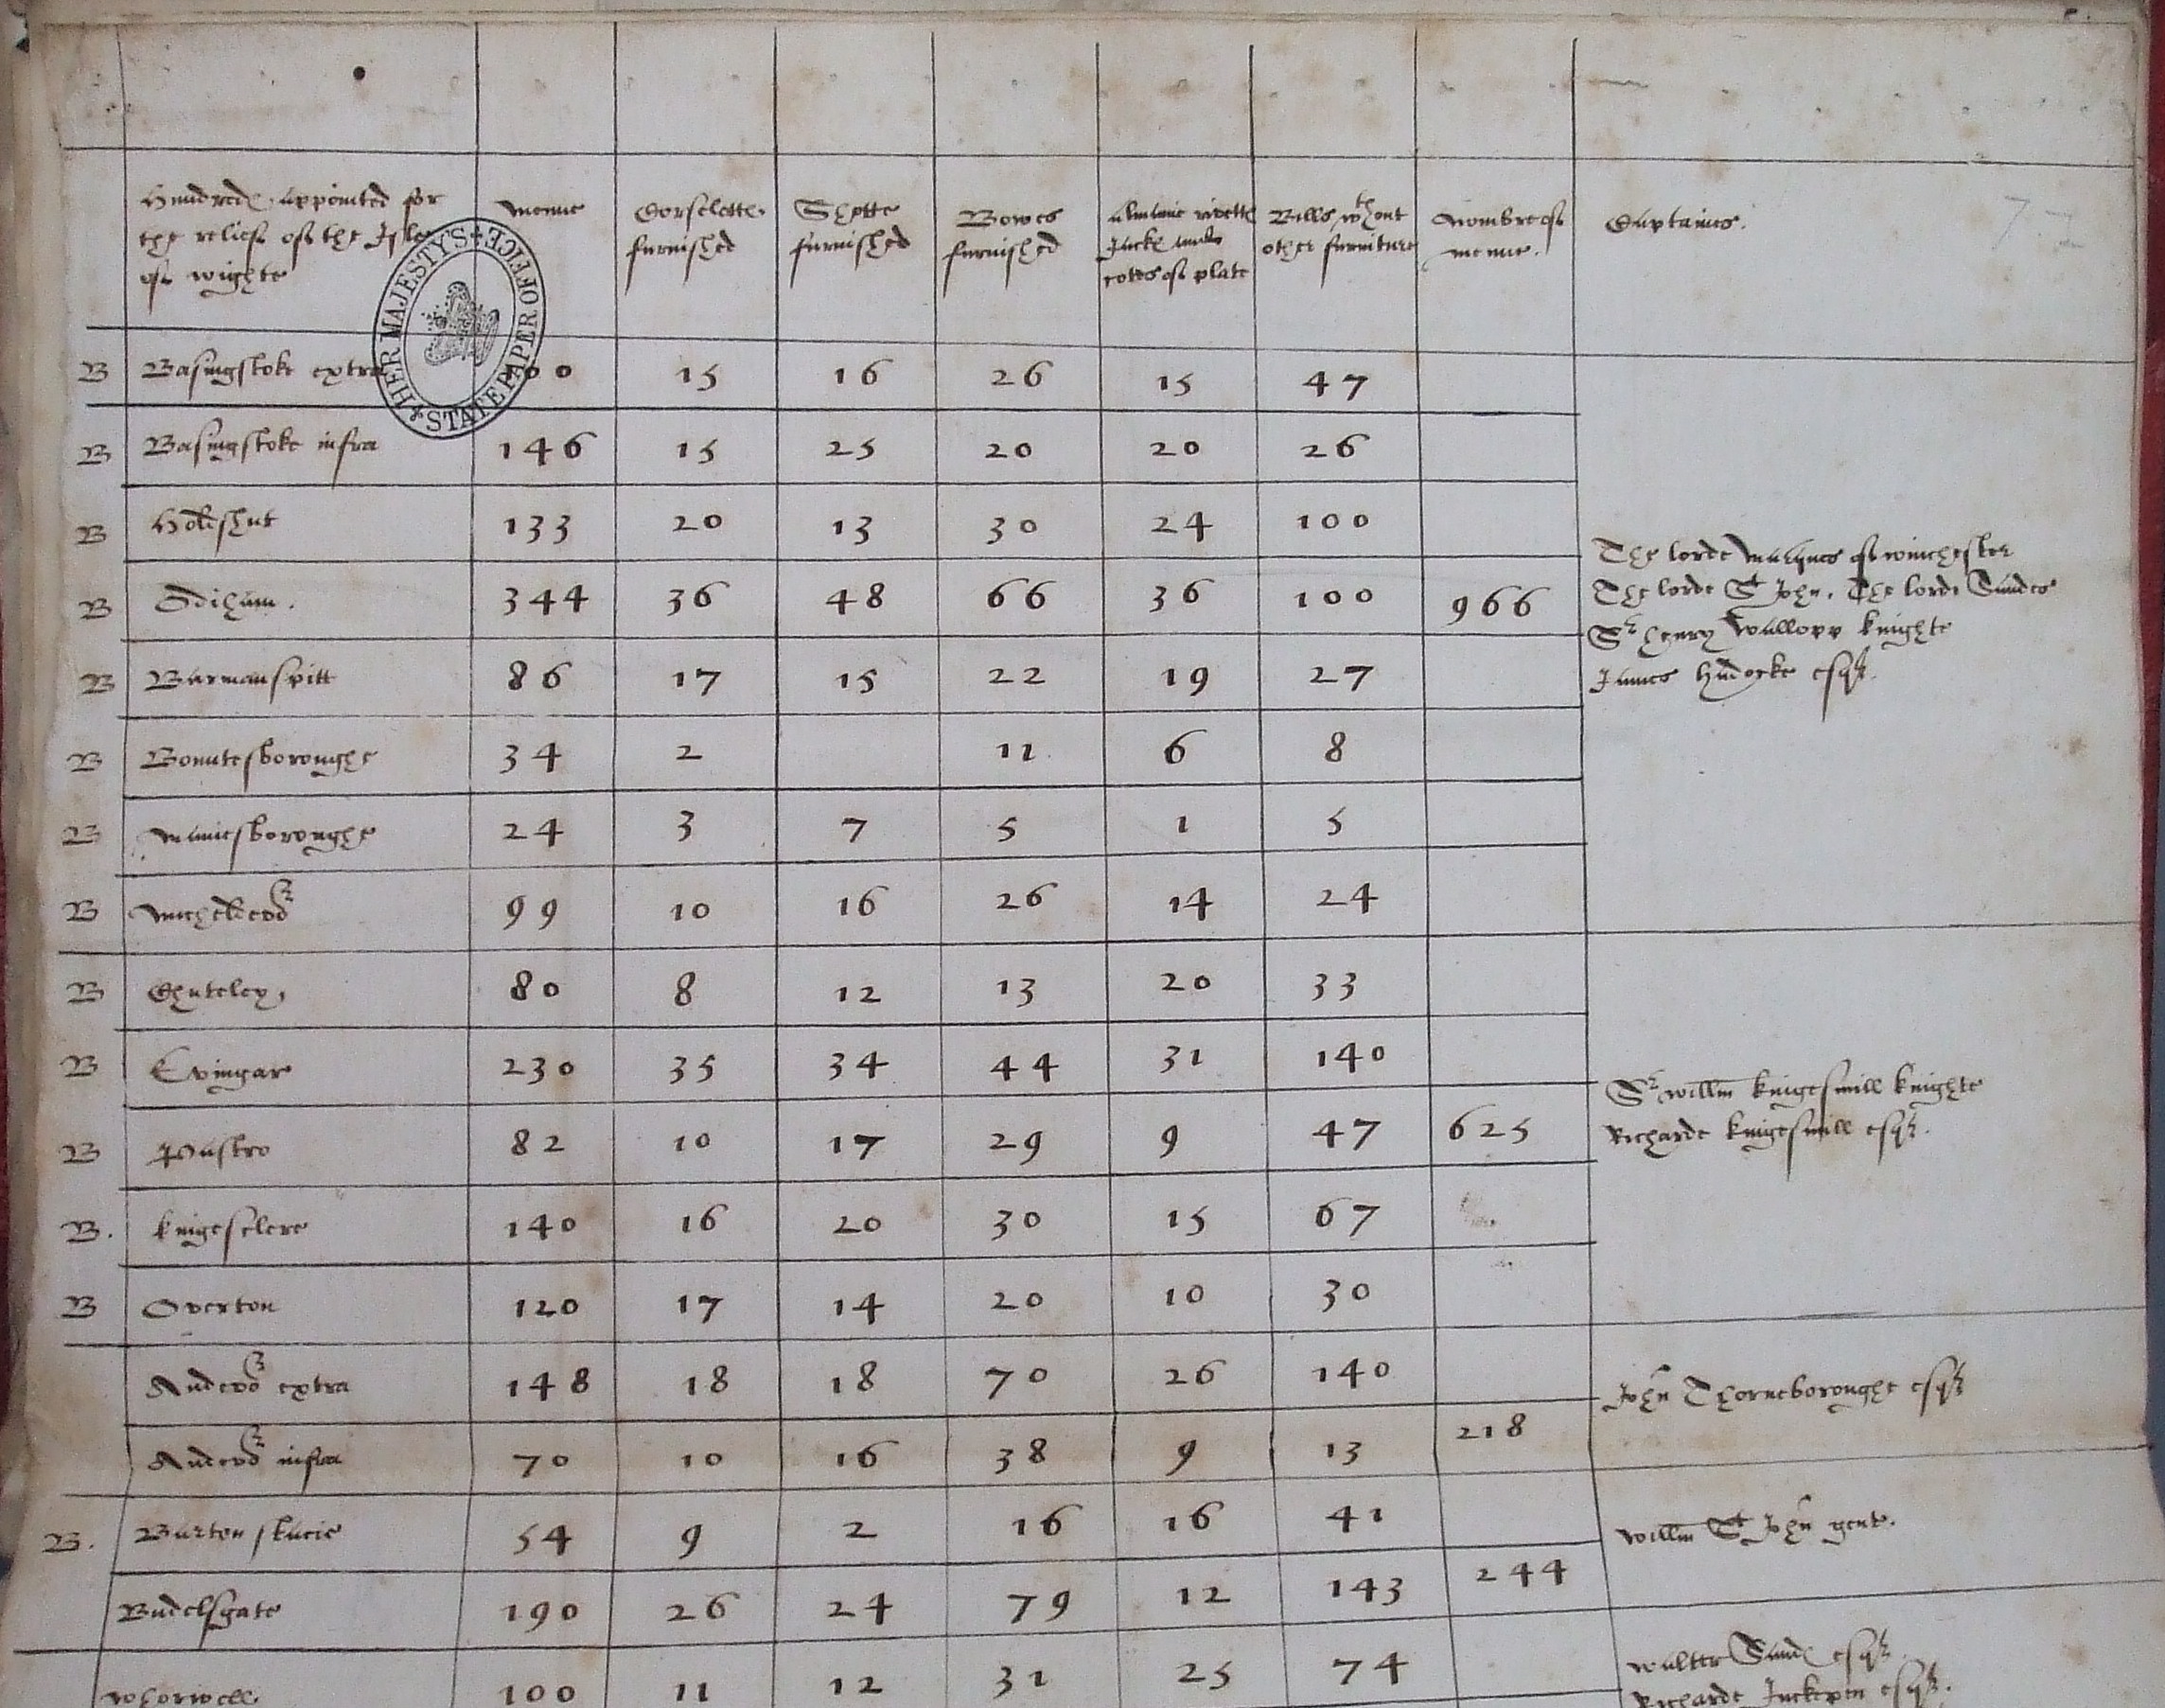 Hundredes appointed for the relief of the Isle of wighte | menne | Corslettes furnished | Shotte furnished | Bowes furnished | Almane rivettes Jackes and cotes of plate | Bills wthout other furniture | Nombre of menne. | Captaines.
HER MAJESTY'S STATE PAPER OFFICE
B Basingstoke extra 00 15 16 26 15 47
B Basingstoke infra 146 15 25 20 20 26
B Holeshut 133 20 13 30 24 100
B Odiham. 344 36 48 66 36 100 966
The lorde Marques of winchester
The lorde St John. The lorde Sandes
Sr henry Wallopp knighte
James Hadocke esqr.
B Barmanspitt 86 17 15 22 19 27
B Bountesboroughe 34 2 11 6 8
B Mainesboroughe 24 3 7 5 1 5
B Michelever 99 10 16 26 14 24
B Chuteley, 80 8 12 13 20 33
B Evingar 230 35 34 44 31 140
Sr willm kingesmill knighte
Richarde kingesmill esqr.
B Pastro 82 10 17 29 9 47 625
B. kingesclere 140 16 20 30 15 67
B Overton 120 17 14 20 10 30
Andevor extra 148 18 18 70 26 140
John Thorneboroughe esqr
Andevor infra 70 10 16 38 9 13 218
B. Barton stacie 54 9 2 16 16 41
willm St John gent.
Budelsgate 190 26 24 79 12 143 244
Whorwell 100 11 12 31 25 74
Walter Sandes esqr
Richarde Inckepen esqr.